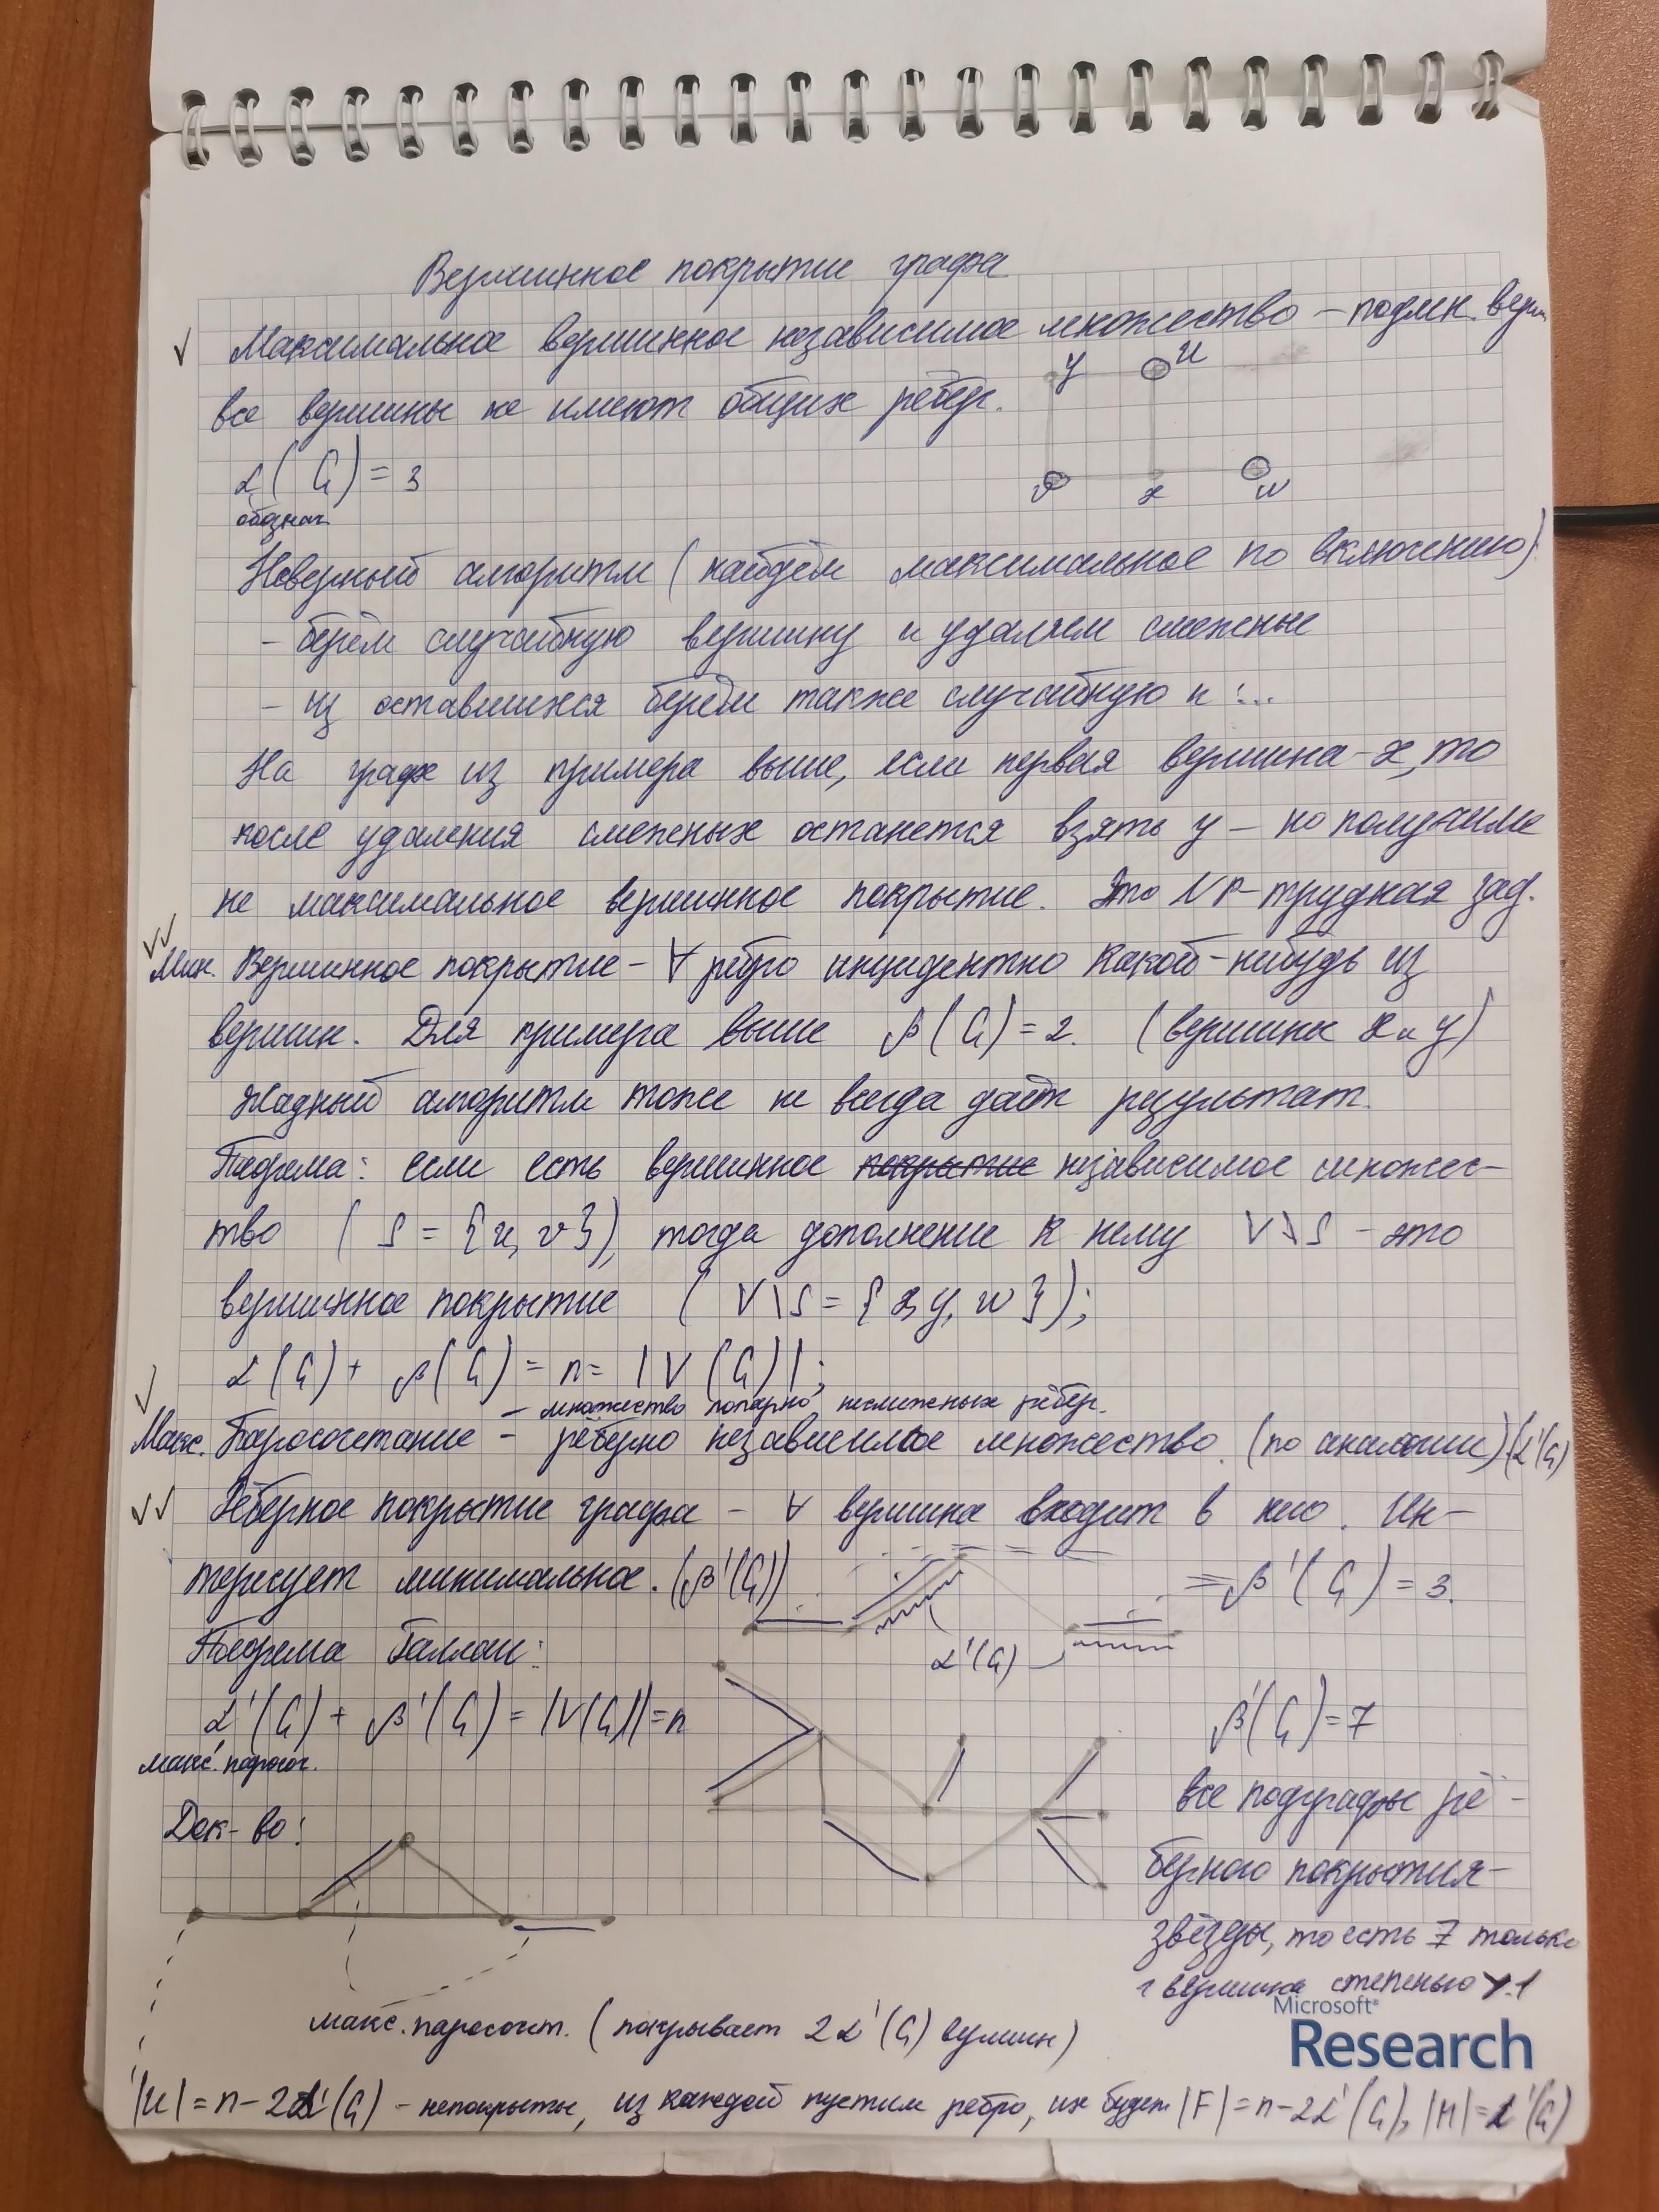 Вершинное покрытие графа
✓ Максимальное вершинное независимое множество – подмн. верш.
все вершины не имеют общих рёбер.
y u
v x w
α(G) = 3
обознач.
Неверный алгоритм (найдём максимальное по включению)
- берём случайную вершину и удаляем смежные
- из оставшихся берём также случайную и ...
На графе из примера выше, если первая вершина - x, то
после удаления смежных останется взять y – но получим
не максимальное вершинное покрытие. Это NP-трудная зад.
✓✓
Мин. Вершинное покрытие – ∀ ребро инцидентно какой-нибудь из
вершин. Для примера выше β(G) = 2. (вершины x и y)
Жадный алгоритм тоже не всегда даёт результат.
Теорема: если есть вершинное покрытие независимое множес-
тво (S = {u, v}), тогда дополнение к нему V\S - это
вершинное покрытие (V\S = {x, y, w});
α(G) + β(G) = n = |V(G)|;
✓
– множество попарно несмежных рёбер.
Макс. Паросочетание – рёберно независимое множество. (по аналогии) (α'(G))
✓✓ Рёберное покрытие графа – ∀ вершина входит в него. Ин-
тересует минимальное. (β'(G))
= β'(G) = 3.
α'(G)
Теорема Галлаи:
α'(G) + β'(G) = |V(G)| = n
макс. парасоч.
β'(G) = 7
все подграфы рё-
берного покрытия -
звёзды, то есть 7 только
1 вершина степенью > 1
Док-во:
Microsoft®
Research
макс. паросочт. (покрывает 2α'(G) вершин)
|U| = n - 2α'(G) - непокрыты, из каждой пустим ребро, их будет |F| = n - 2α'(G), |M| = α'(G)